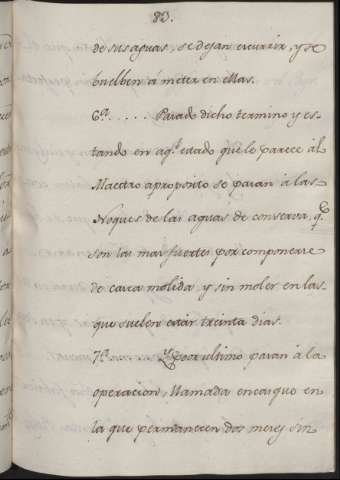 83.
de sus aguas, se dejan escurrir, y se
buelben á meter en ellas.
6ª..... Pasado dicho termino y es-
tando en aqˡ estado que le parece ál
Maestro aproposito se pasan á las
Noques de las aguas de conserva, qᵉ
son las mas fuertes por componerse
de casca molida, y sin moler en las
que suelen estár treinta dias.
7ª Y por ultimo pasan á la
operacion, llamada encasque en
la que permanecen dos meses sin